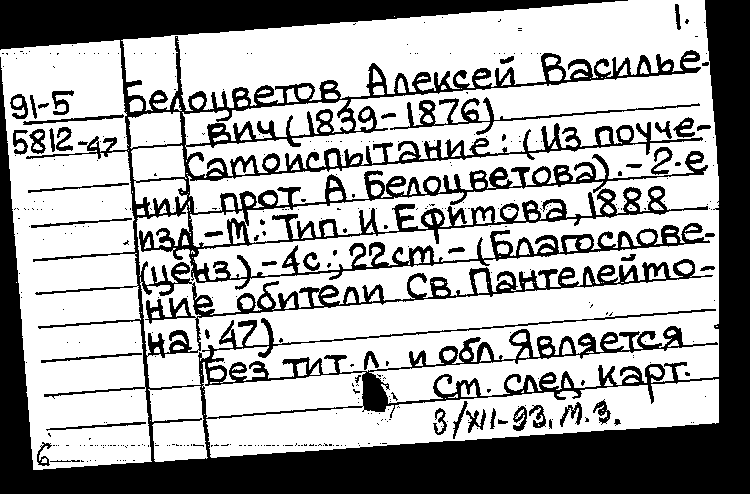 1.
91-5
5812-47
Белоцветов, Алексей Василье-
вич (1839-1876).
Самоиспытание: (Из поуче-
ний прот. А. Белоцветова).-2-е
изд.-М.: Тип. И. Ефимова, 1888
(ценз.).-4с.; 22см.-(Благослове-
ние обители Св. Пантелеймо-
на ; 47).
Без тит. л. и обл. Является
См. след. карт.
3/XII-93. М.З.
6